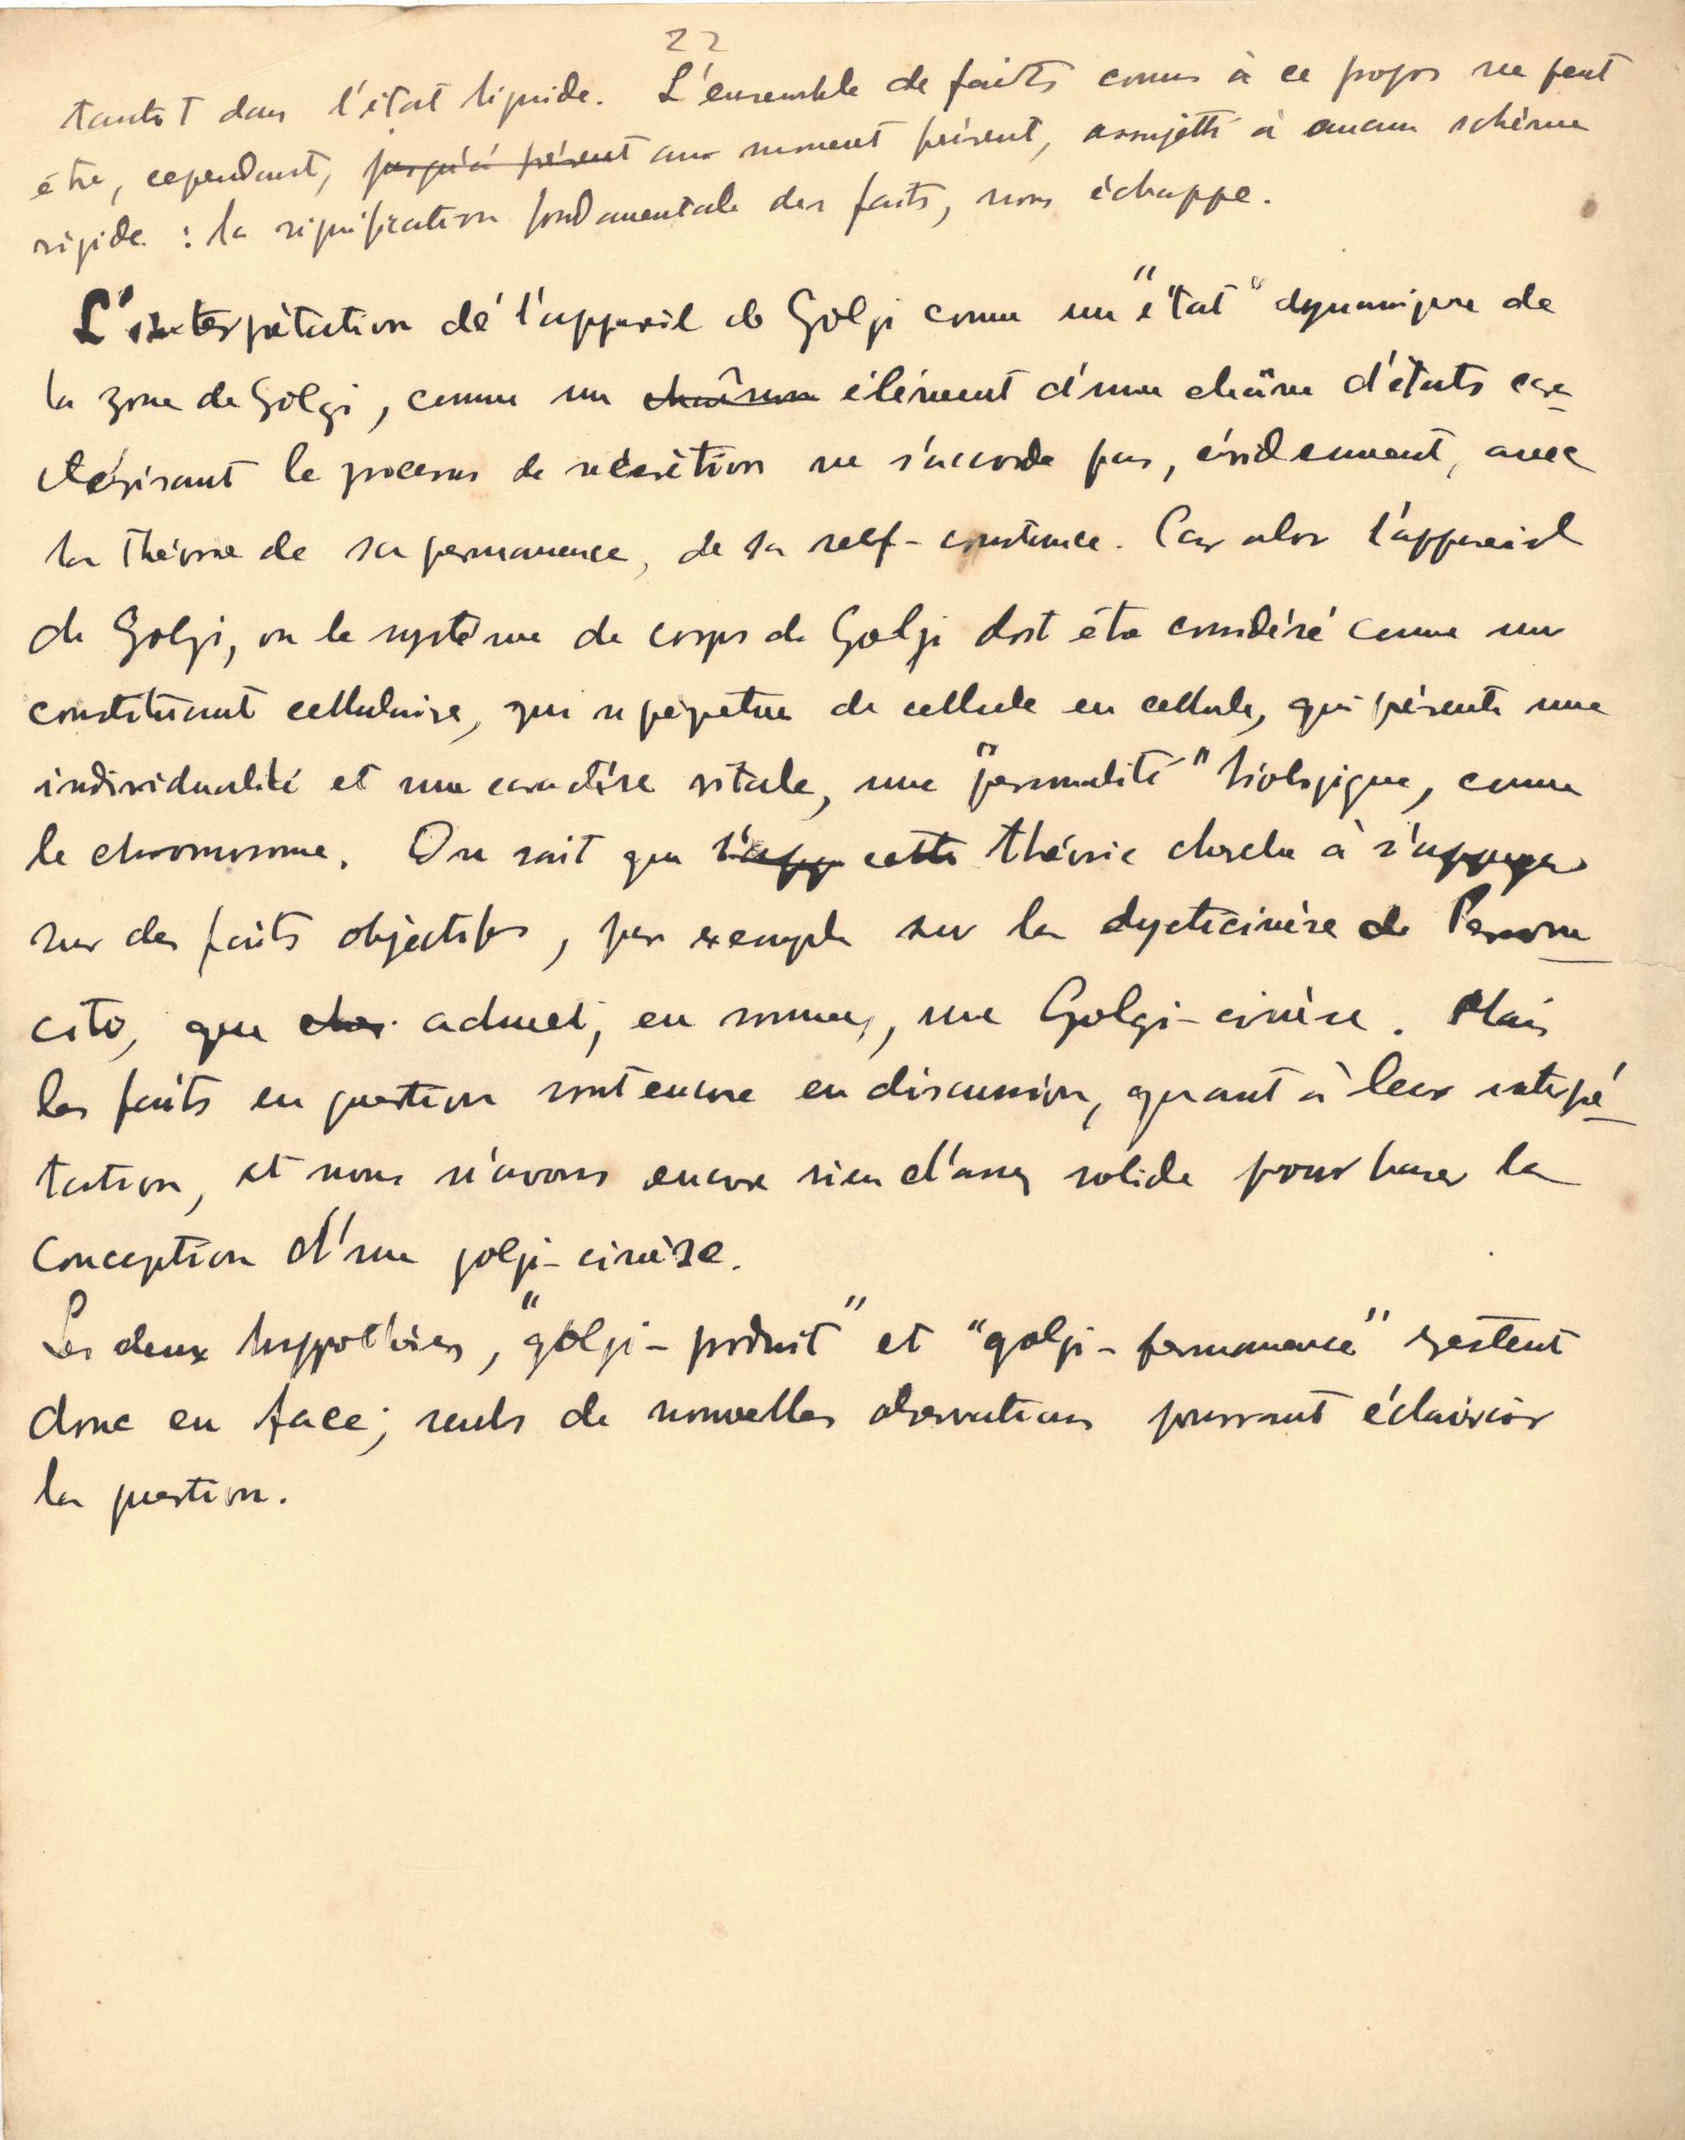 22
tantôt dans l'état liquide. L'ensemble de faits connus à ce propos ne peut
être, cependant, jusqu'à présent au moment présent, assujetti à aucun schème
rigide : la signification fondamentale des faits, nous échappe.
L'interprétation de l'appareil de Golgi comme un "état" dynamique de
la zone de Golgi, comme un chaînon élément d'une chaîne d'états cara-
ctérisant le processus de sécrétion ne s'accorde pas, évidemment, avec
la théorie de sa permanence, de sa self-constance. Car alors l'appareil
de Golgi, ou le système de corps de Golgi doit être considéré comme un
constituant cellulaire, qui se perpetue de cellule en cellule, qui présente une
individualité et une caractère vitale, une "personnalité" biologique, comme
le chromosome. On sait que s'app cette théorie cherche à s'appuyer
sur des faits objectifs, par exemple sur la dyctiocinèse de Perron-
cito, que admet, en somme, une Golgi-cinèse. Mais
les faits en question sont encore en discussion, quant à leur interpré-
tation, et nous n'avons encore rien d'assez solide pour baser la
conception d'une golgi-cinèse.
Les deux hyppothèses, "golgi-produit" et "golgi-permanence" restent
donc en face; seuls de nouvelles observations pourront éclaircir
la question.